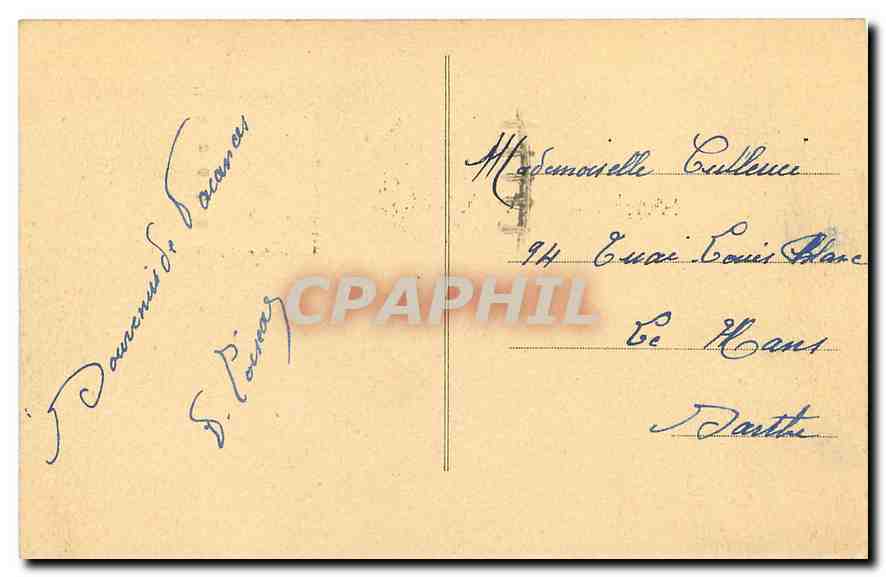 Souvenirs de Vacances
CPAPHIL
Mademoiselle
94 Quai Louis Blanc
Le Mans
Sarthe